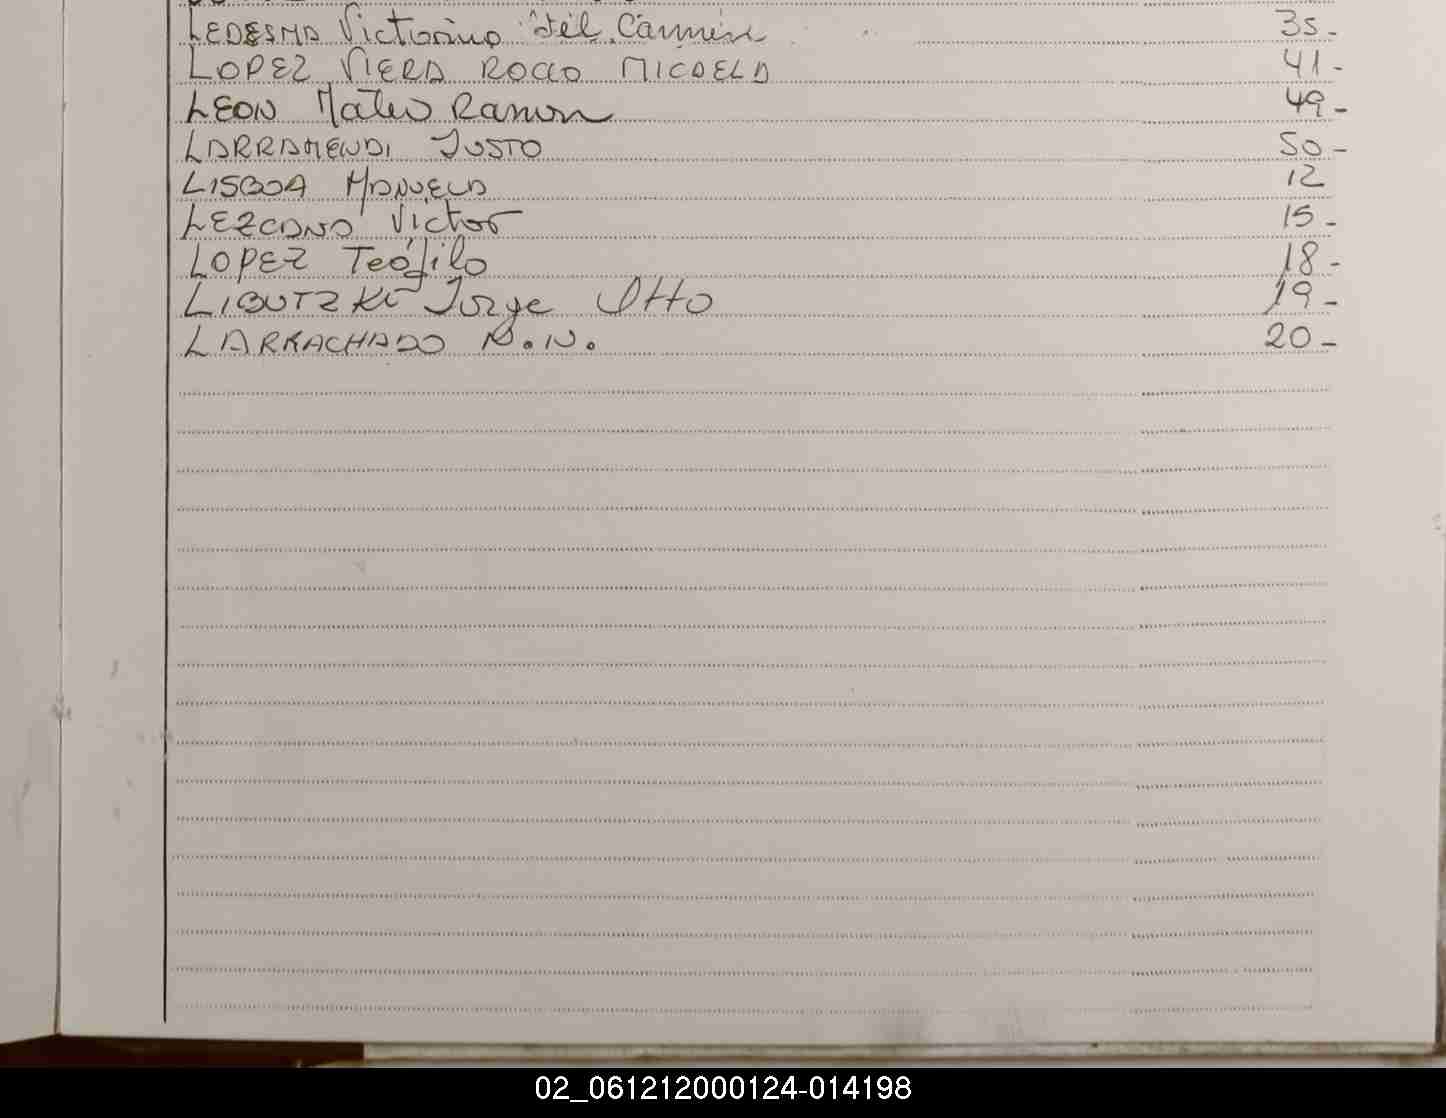 LEDESMA Victorino del Carmen 35-
LOPEZ VIERA ROCIO MICAELA 41-
LEON Mateo Ramon 49-
LARRAMENDI JUSTO 50-
LISBOA MANUELA 12
LEZCANO Victor 15-
LOPEZ Teófilo 18-
LIBUTZKI Jorge Otto 19-
LARRACHADO N.N. 20-
02_061212000124-014198